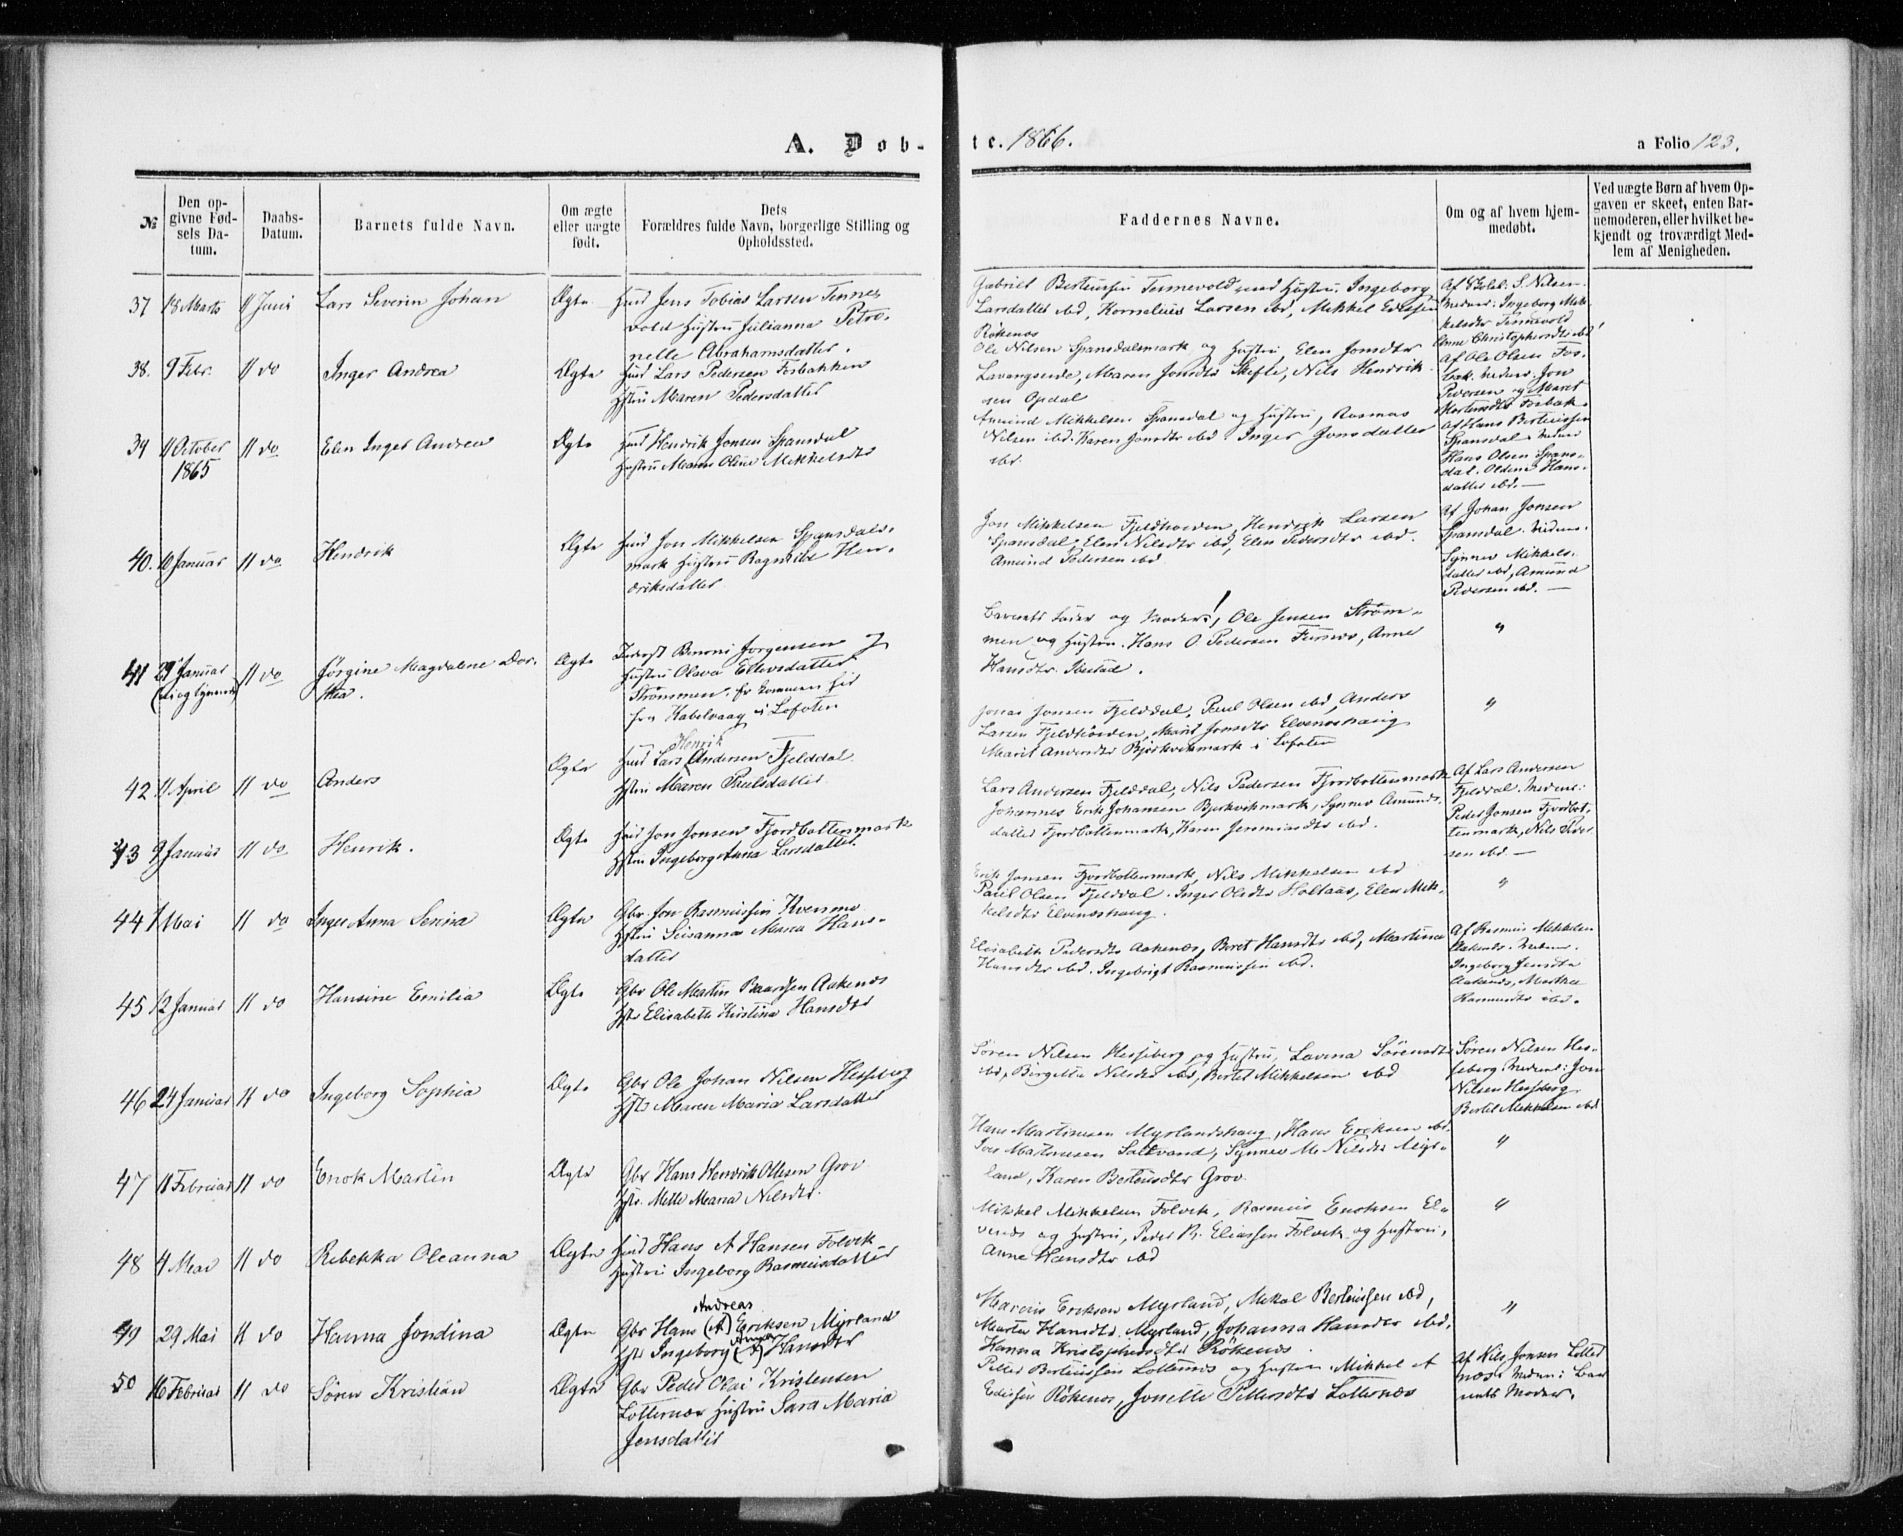 A. Døb-
te. 1866.
a Folio 123.
№
Den op-
givne Fød-
sels Da-
tum.
Daabs-
Datum.
Barnets fulde Navn.
Om ægte
eller uægte
født.
Dets
Forældres fulde Navn, borgerlige Stilling og
Opholdssted.
Faddernes Navne.
Om og af hvem hjem-
medøbt.
Ved uægte Børn af hvem Op-
gaven er skeet, enten Bar-
nemoderen, eller hvilket be-
kjendt og troværdigt Med-
lem af Menigheden.
37 18 Marts 11 Juni Lars Severin Johan Ægte Huud Jens Tobias Larsen Tennes
vold Hustru Julianna Petro-
nelle Abrahamsdatter.
Gabriel Berteussen Tennevold und Hustru Ingeborg
Larsdatter ibd, Kornelius Larsen ibd, Mikkel Edissen
Røkenes
Af Skolel. S. Nilsen
Medvid: Ingeborg Mik-
kelsdtr Tennevold
Anne Christophersdtr ibd
38. 9 Febr. 11 do Inger Andrea Ægte Huud Lars Pedersen Fosbakken
Hstru Maren Pedersdatter
Ole Nilsen Spansdalsmark og Hustru, Elen Jonsdtr
Lavangseide, Maren Jonsdtr Skefte, Nils Hendrik-
sen Opdal
Af Ole Olsen Fos-
bak. Medvid. Jon
Pedersen og Marit
Mortensdtr Fosbak.
39 11 October 11 do Elen Inger Andrea Ægte Huud Hendrik Jonsen Spansdal
1865
Hustru Maren Oline Mikkelsdtr
Amund Mikkelsen Spansdal og Hustru, Rasmus
Nilsen ibd. Karen Jonsdtr ibd Inger Jonsdatter
ibd.
Af Hans Berteussen
Spansdal. Medvid
Hans Olsen Spans-
dal. Oldine Hans-
datter ibd. —
40. 10 Januar 11 do Hendrik Ægte Huud Jon Mikkelsen Spansdals-
mark Hustru Ragnild Hen-
driksdatter
Jon Mikkelsen Fjeldhøiden, Hendrik Larsen
Spansdal, Elen Nilsdtr ibd, Elen Pedersdtr ibd.
Amund Pedersen ibd
Af Johan Jonsen
Spansdal. Medvid.
Synnev Mikkels-
datter ibd, Amund
Pedersen ibd. —
41 29 Januar 11 do Jørgine Magdalene Dor-
thea.
Ægte
Inderst Benoni Jørgensen
Hustru Olava Ellevsdatter
Strømmen. Er kommen hid
fra Kabelvaag i Lofoten
Barnets Fader og Moder!, Ole Jensen Strøm-
men og Hustru. Hans O. Pedersen Fursæt, Anne
Hansdtr Ibestad.
"
42 11 April 11 do Anders Ægte Huud Lars Henrik Andersen Fjelddal
Hstru Maren Paulsdatter
Jonas Jonsen Fjelddal, Paul Olsen ibd, Anders
Larsen Fjeldhøiden, Marit Jonsdtr Elveneshaug
Marit Andersdtr Bjerkvikmark i Lofoten
"
43 9 Januar 11 do Henrik. Ægte Huud Jon Jonsen Fjordbottenmark
Hstru Ingeborg Anna Larsdatter.
Lars Andersen Fjelddal, Nils Pedersen Fjordbottenmark
Johannes Erik Johansen Bjerkvikmark, Synnev Amunds-
datter Fjordbottenmark, Karen Jeremiasdtr ibd.
Af Lars Andersen
Fjelddal. Medvid:
Peder Jonsen Fjordbot-
tenmark, Nils Peder
sen ibd —
44 1 Mai 11 do Inger Anna Serina Ægte Gbr. Jon Rasmussen Kvernmo
Hstru Susanna Maria Hans-
datter
Erik Jonsen Fjordbottenmark, Nils Mikkelsen ibd
Paul Olsen Fjelddal. Inger Olsdtr Holtaas, Elen Mik-
kelsdtr Elveneshaug.
"
45 12 Januar 11 do Hansine Emilia Ægte Gbr Ole Martin Baardsen Aakenes
Hstr Elisabeth Kirstina Hansdtr
Elisabeth Pedersdtr Aakenes, Beret Hansdtr ibd, Martina
Hansdtr ibd. Ingebrigt Rasmussen ibd.
Af Rasmus Mikkelsen
Aakenes. Medvid.
Ingeborg Jensdtr
Aakenes, Marthea
Rasmusdtr ibd.
46 24 Januar 11 do Ingeborg Sophia Ægte Gbr Ole Johan Nilsen Hesseberg
Hstr Maren Maria Larsdatter
Søren Nilsen Hesseberg og Hustru, Lavina Sørensdtr
ibd, Birgitte Nilsdtr ibd, Bertel Mikkelsen ibd
Søren Nilsen Hes-
seberg Medvid: Jon
Nilsen Hesseberg
Bertel Mikkelsen ibd
47 11 Februar 11 do Enok Martin Ægte Gbr Hans Hendrik Ottesen Grov
Hstr. Mette Maria Nilsdtr.
Hans Martinusen Myrlandshaug, Hans Eriksen ibd.
Iver Martinusen Saltvand, Synnev M. Nilsdtr Myr-
land, Karen Berteusdtr Grov.
"
48 4 Mai 11 do Rebekka Oleanna Ægte Huud Hans A Hansen Folvik
Hustru Ingeborg Rasmusdatter
Mikkel Mikkelsen Folvik, Rasmus Enoksen El-
venes og Hustru, Peder R. Eliassen Folvik og Hustru,
Anne Hansdtr ibd
"
49 29 Mai 11 do Hanna Jondina Ægte Gbr Hans (A) Andreas Eriksen Myrland
Hstr Ingeborg (A) Anna Hansdtr
Marius Eriksen Myrland, Mikal Berteussen ibd,
Marta Hansdtr Myrland, Johanna Hansdtr ibd.
Hanna Kristophersdtr Røkenes.
"
50 16 Februar 11 do Sören Kristian Ægte Gbr Peder Olai Kristensen
Lotternæs Hustru Sara Maria
Jensdatter
Petter Berteussen Lotternes og Hustru. Mikkel A
Edissen Røkenes, Jonette Pettersdtr Lotternæs
Af Nils Jonsen Lotter
næs. Medvid: Bar
nets Moder.